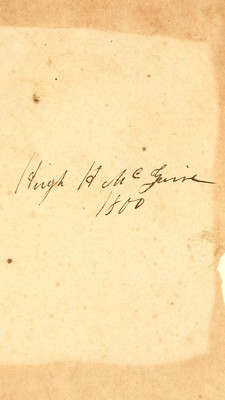 Hugh H McGuire
1800